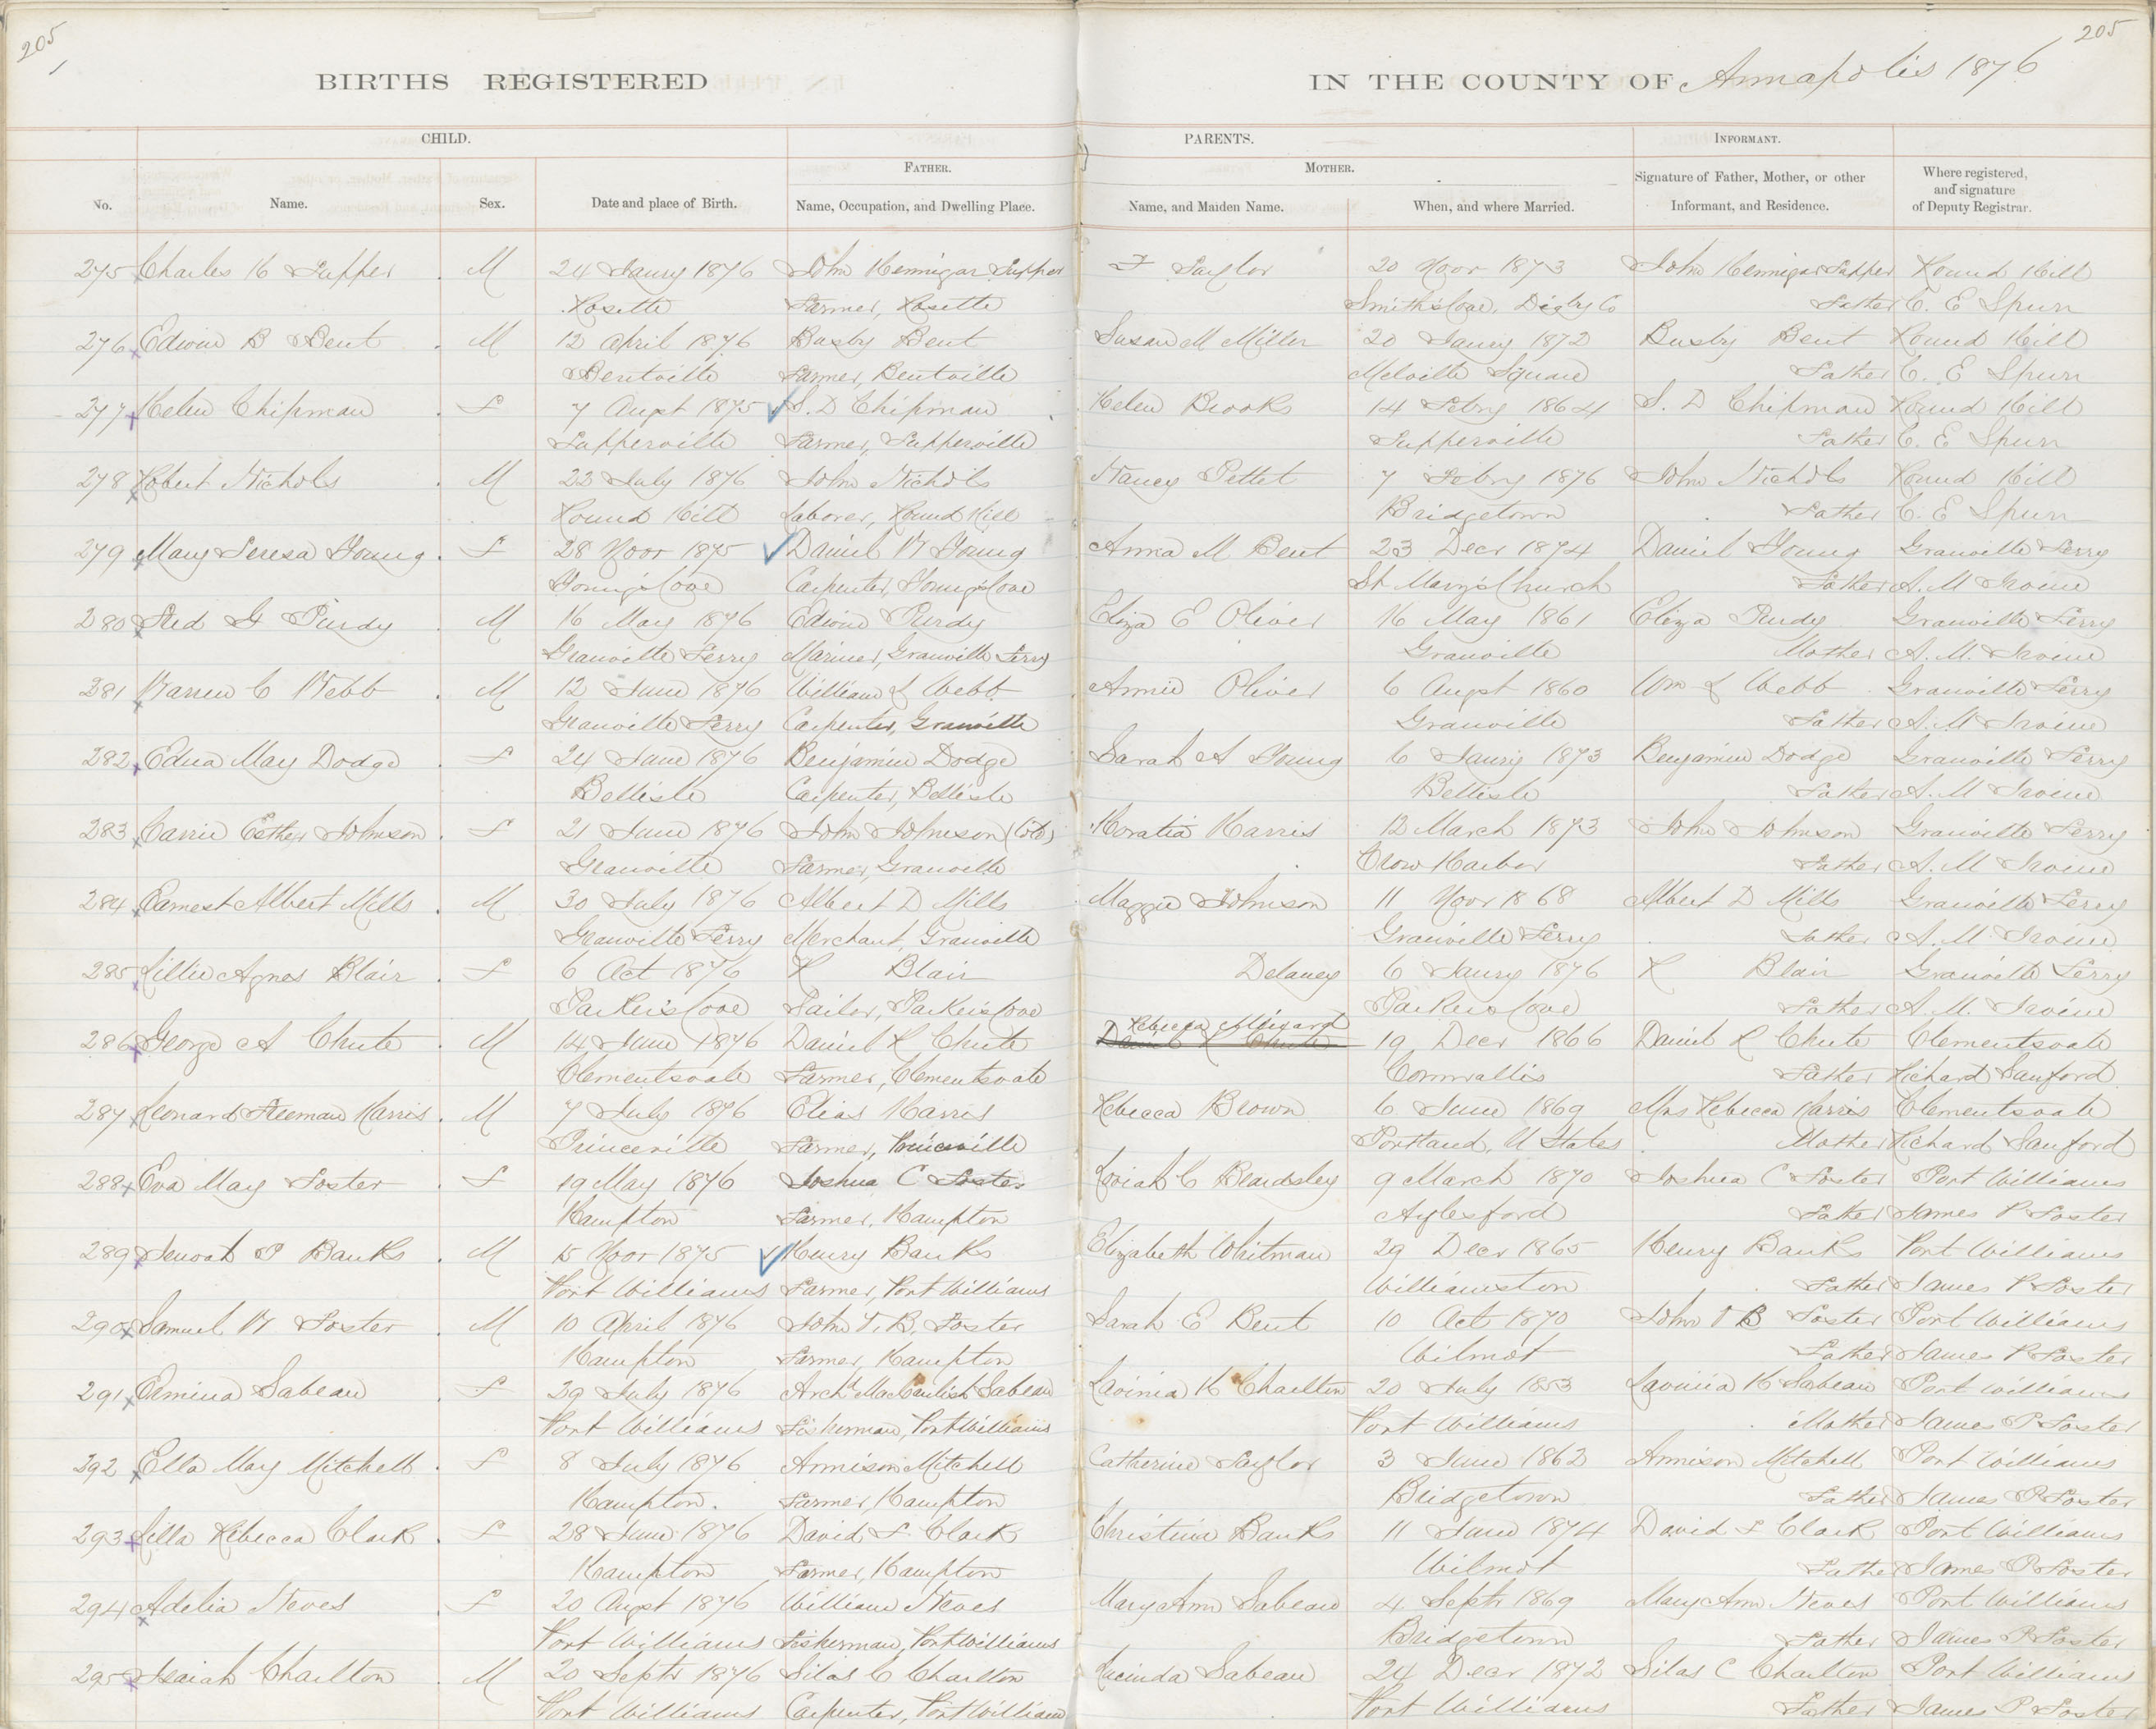 205
205
BIRTHS REGISTERED IN THE COUNTY OF Annapolis 1876
CHILD. PARENTS. INFORMANT.
FATHER. MOTHER.
No. Name. Sex. Date and place of Birth. Name, Occupation, and Dwelling Place. Name, and Maiden Name. When, and where Married. Signature of Father, Mother, or other Informant, and Residence. Where registered, and signature of Deputy Registrar.
275 Charles H Tupper M 24 Jany 1876 John Hennigar Tupper Taylor 20 Novr 1873 John Hennigar Tupper Round Hill
Rosette Farmer, Rosette Smiths Cove, Digby Co Father C. E Spurr
276 Edwin B Bent M 12 April 1876 Busby Bent Susan M Miller 20 Jany 1872 Busby Bent Round Hill
Bentville Farmer, Bentville Melville Square Father C. E Spurr
277 Helen Chipman F 7 Augst 1875 S. D Chipman Helen Brooks 14 Febry 1864 S. D Chipman Round Hill
Tupperville Farmer, Tupperville Tupperville Father C. E Spurr
278 Robert Nichols M 22 July 1876 John Nichols Nancy Pettet 7 Febry 1876 John Nichols Round Hill
Round Hill Laborer, Round Hill Bridgetown Father C. E Spurr
279 Mary Teresa Young F 28 Novr 1875 Daniel W Young Anna M Bent 23 Decr 1874 Daniel Young Granville Ferry
Young's Cove Carpenter, Young's Cove St Mary's Church Father A. M Irvine
280 Fred G Purdy M 16 May 1876 Edwin Purdy Eliza E Oliver 16 May 1861 Eliza Purdy Granville Ferry
Granville Ferry Mariner, Granville Ferry Granville Mother A. M. Irvine
281 Warren C Webb M 12 June 1876 William J Webb Annie Oliver 6 Augst 1860 Wm J Webb Granville Ferry
Granville Ferry Carpenter, Granville Granville Father A. M Irvine
282 Edna May Dodge F 24 June 1876 Benjamin Dodge Sarah A Young 6 Jany 1873 Benjamin Dodge Granville Ferry
Bellisle Carpenter, Bellisle Bellisle Father A. M Irvine
283 Carrie Esther Johnson F 21 June 1876 John Johnson (Cold) Horatia Harris 12 March 1873 John Johnson Granville Ferry
Granville Farmer, Granville Crow Harbor Father A. M Irvine
284 Earnest Albert Mills M 30 July 1876 Albert D Mills Maggie Johnson 11 Novr 1868 Albert D Mills Granville Ferry
Granville Ferry Merchant, Granville Granville Ferry Father A. M Irvine
285 Lillie Agnes Blair F 6 Oct 1876 R Blair Delaney 6 Jany 1876 R Blair Granville Ferry
Parker's Cove Sailor, Parker's Cove Parkers Cove Father A. M. Irvine
Rebecca
286 George A Chute M 14 June 1876 Daniel R Chute 19 Decr 1866 Daniel R Chute Clementsvale
Clementsvale Farmer, Clementsvale Cornwallis Father Richard Sanford
287 Leonard Freeman Harris M 7 July 1876 Elias Harris Rebecca Brown 6 June 1869 Mrs Rebecca Harris Clementsvale
Princeville Farmer, Princeville Portland, U States Mother Richard Sanford
288 Eva May Foster F 19 May 1876 Joshua C Foster C Beardsley 9 March 1870 Joshua C Foster Port Williams
Hampton Farmer, Hampton Aylesford Father James P Foster
289 P Banks M 15 Novr 1875 Henry Banks Elizabeth Whitman 29 Decr 1865 Henry Banks Port Williams
Port Williams Farmer, Port Williams Williamston Father James P Foster
290 Samuel W Foster M 10 April 1876 John T. B. Foster Sarah E Bent 10 Oct 1870 John T B Foster Port Williams
Hampton Farmer, Hampton Wilmot Father James P Foster
291 Ermina Sabean F 29 July 1876 Archd Sabean Lavinia H Charlton 20 July 1853 Lavinia H Sabean Port Williams
Port Williams Fisherman, Port Williams Port Williams Mother James P Foster
292 Ella May Mitchell F 8 July 1876 Annison Mitchell Catherine Taylor 3 June 1862 Annison Mitchell Port Williams
Hampton. Farmer, Hampton Bridgetown Father James P Foster
293 Lilla Rebecca Clark F 28 June 1876 David F Clark Christina Banks 11 June 1874 David F Clark Port Williams
Hampton Farmer, Hampton Wilmot Father James P Foster
294 Adelia Neves F 20 Augst 1876 William Neves Mary Ann Sabean 4 Septr 1869 Mary Ann Neves Port Williams
Port Williams Fisherman, Port Williams Bridgetown Father James P Foster
295 Isaiah Charlton M 20 Septr 1876 Silas C Charlton Lucinda Sabean 24 Decr 1872 Silas C Charlton Port Williams
Port Williams Carpenter, Port Williams Port Williams Father James P Foster